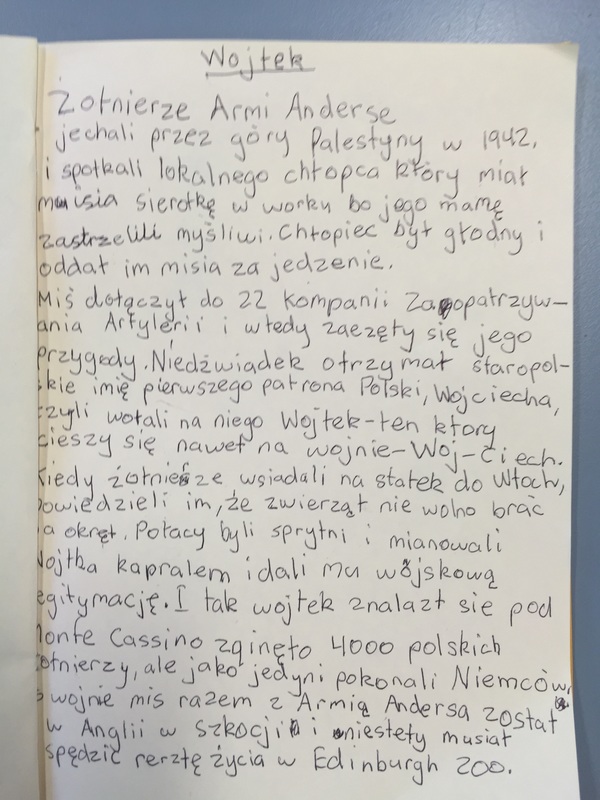 Wojtek
Żołnierze Armi Anderse
jechali przez góry Palestyny w 1942.
i spotkali lokalnego chłopca który miał
misia sierotkę w worku bo jego mamę
zastrzelili myśliwi. Chłopiec był głodny i
oddał im misia za jedzenie.
Miś dołączył do 22 kompanii Zaopatrzyw-
ania Artylerii i wtedy zaczęły się jego
przygody. Niedźwiadek otrzymał staropol-
skie imię pierwszego patrona Polski, Wojciecha,
czyli wołali na niego Wojtek-ten ktory
cieszy się nawet na wojnie-Woj-Ciech.
Kiedy żołnierze wsiadali na statek do Włoch,
powiedzieli im, że zwierząt nie wolno brać
na okręt. Polacy byli sprytni i mianowali
Wojtka kapralem i dali mu wojskową
legitymację. I tak wojtek znalazł sie pod
Monte Cassino zginęło 4000 polskich
żołnierzy, ale jako jedyni pokonali Niemców.
wojnie mis razem z Armią Andersa został
w Anglii w szkocji i niestety musiał
spędzić rerztę życia w Edinburgh zoo.